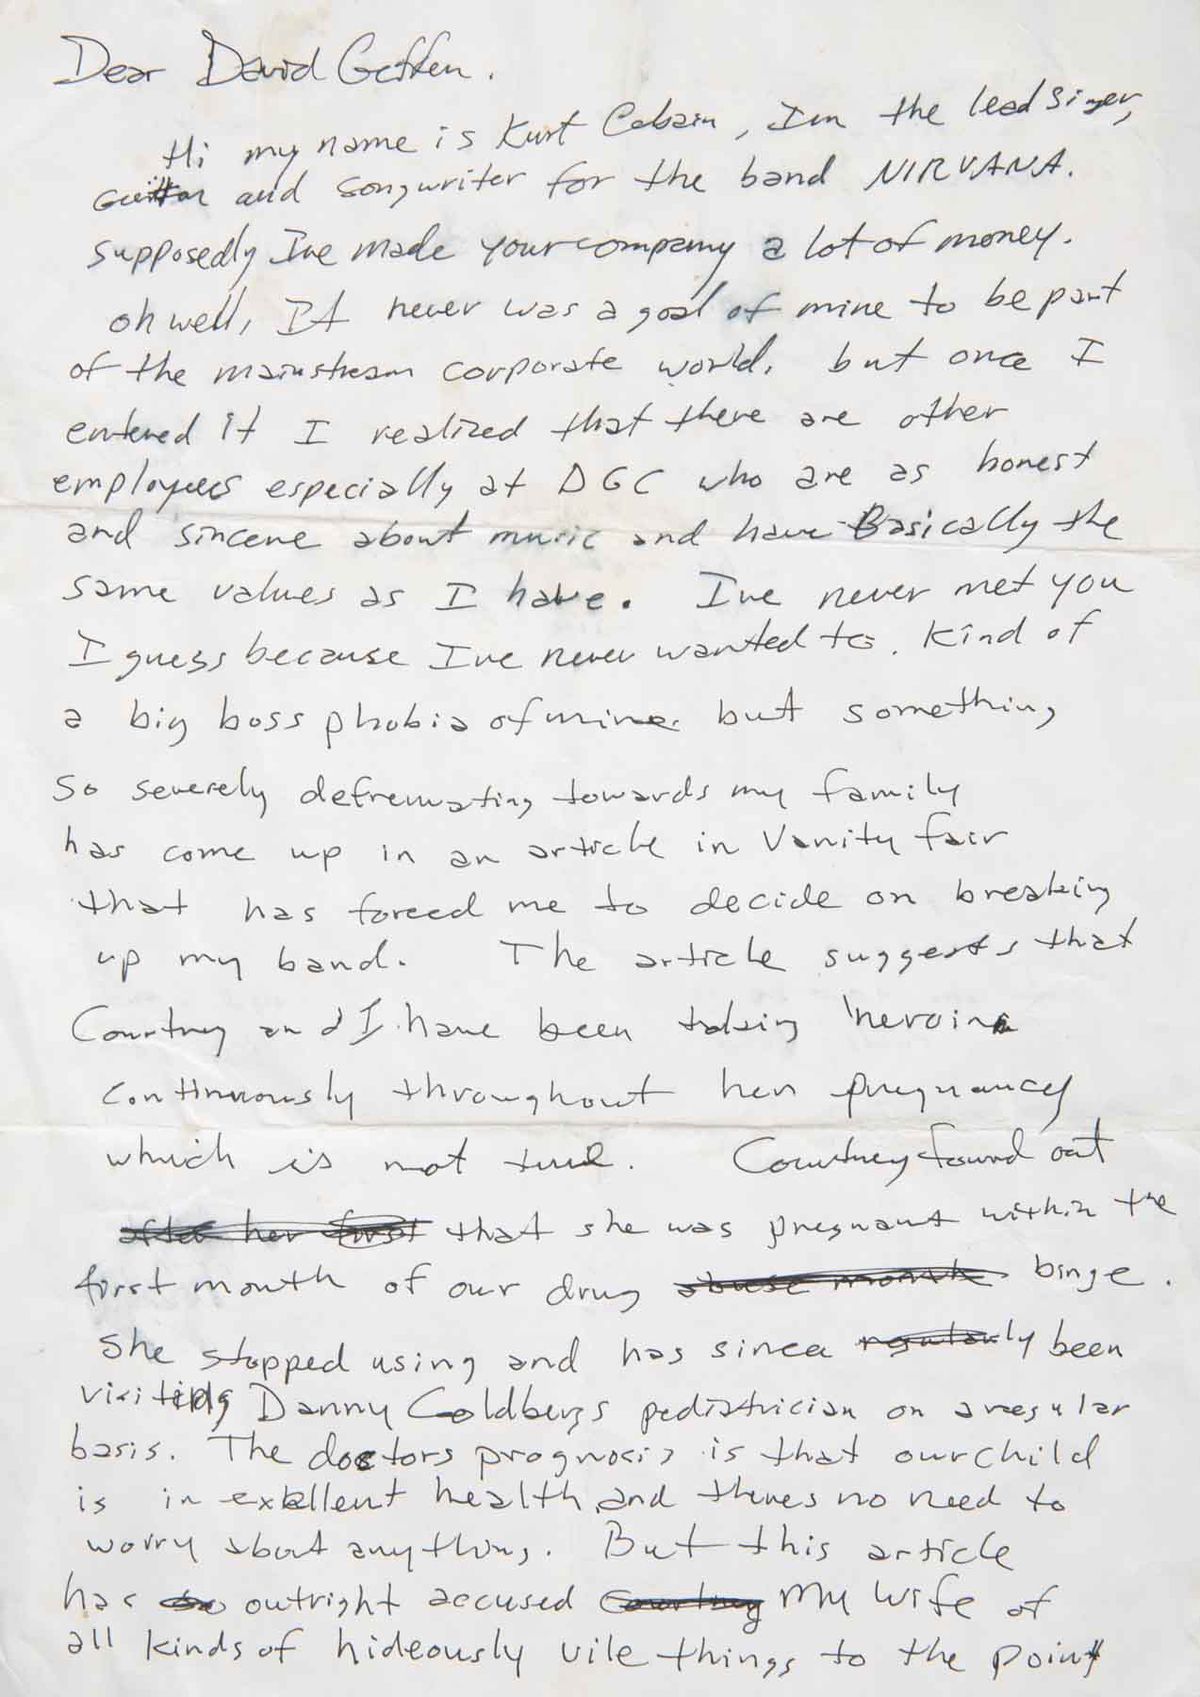 Dear David Geffen.
Hi my name is Kurt Cobain, Im the lead Singer,
Guitar and songwriter for the band NIRVANA.
supposedly Ive made your company a lot of money.
oh well, It never was a goal of mine to be part
of the mainstream corporate world. but once I
entered it I realized that there are other
employees especially at DGC who are as honest
and sincere about music and have Basically the
same values as I have. Ive never met you
I guess because Ive never wanted to. Kind of
a big boss phobia of mine. but something
so severely defremating towards my family
has come up in an article in Vanity fair
that has forced me to decide on breaking
up my band. The article suggests that
Courtney and I have been taking heroin
continuously throughout her pregnancy
which is not true. Courtney found out
after her first that she was pregnant within the
first month of our drug abuse month binge.
She stopped using and has since regularly been
visiting Danny Goldbergs pediatrician on a regular
basis. The doctors prognosis is that our child
is in excellent health and theres no need to
worry about anything. But this article
has outright accused Courtney My wife of
all kinds of hideously vile things to the point